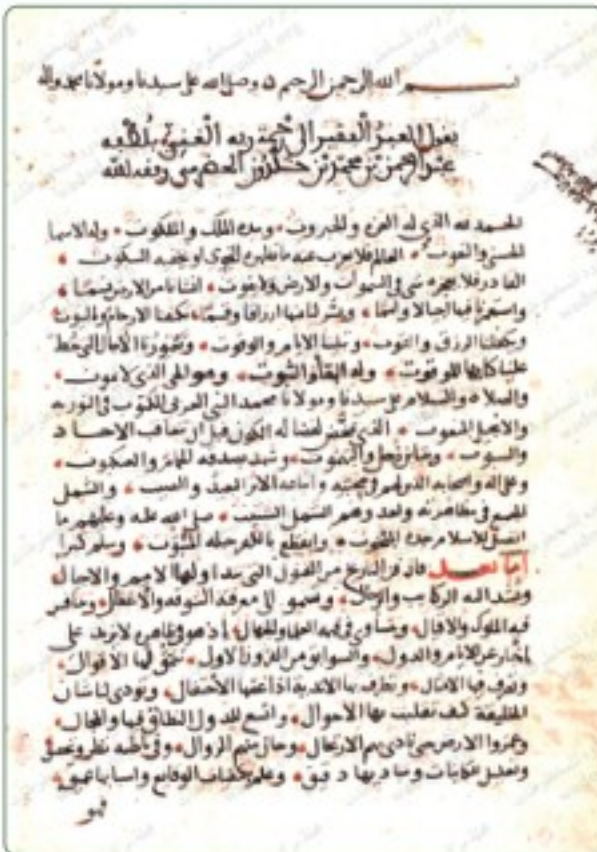 بسم الله الرحمن الرحيم وصلى الله على سيدنا ومولانا محمد واله
يقول العبد الفقير الى رحمة ربه الغني بلطفه
عبد الرحمن بن محمد بن خلدون الحضرمي وفقه الله
الحمد لله الذي له العزة والجبروت • وبيده الملك والملكوت • وله الاسما
الحسنى والنعوت • العالم فلا يعزب عنه ما تظهره النجوى او يخفيه السكوت •
القادر فلا يعجزه شي في السموات والارض ولا يفوت • انشانا من الارض نسما •
واستعمرنا فيها اجيالا وامما • ويسر لنا منها ارزاقا وقسما • تكنفنا الارحام والبيوت
ويكفلنا الرزق والقوت • وتبلينا الايام والوقوت • وتعتورنا الاجال التي خط
علينا كتابها الموقوت • وله البقا والثبوت • وهو الحي الذي لا يموت •
والصلاة والسلام على سيدنا ومولانا محمد النبي العربي المكتوب في التورية
والانجيل المنعوت • الذي تمخض لفصاله الكون قبل ان تتعاقب الاحاد
والسبوت • وتباين زحل واليهموت • وشهد بصدقه الحمام والعنكبوت •
وعلى اله واصحابه الذين لهم في محبته واتباعه الاثر البعيد والصيت • والشمل
الجميع في مظاهرته ولعدوهم الشمل الشتيت • صلى الله عليه وعليهم ما
اتصل بالاسلام جده المبخوت • وانقطع بالكفر حبله المبتوت • وسلم كثيرا
اما بعد فان فن التاريخ من الفنون التي تتداولها الامم والاجيال •
وتشد اليه الركايب والرحال • وتسمو الى معرفته السوقة والاغفال • وتتنافس
فيه الملوك والاقيال • ويتساوى في فهمه العلما والجهال • اذ هو في ظاهره لا يزيد على
اخبار عن الايام والدول • والسوابق من القرون الاول • تنمق لها الاقوال •
وتصرف فيها الامثال • وتطرف بها الاندية اذا غصها الاحتفال • وتودي لنا شان
الخليقة كيف تقلبت بها الاحوال • واتسع للدول النطاق فيها والمجال •
وعمروا الارض حتى نادى بهم الارتحال • وحان منهم الزوال • وفي باطنه نظر وتحقيق
وتعليل للكاينات ومباديها دقيق • وعلم بكيفيات الوقايع واسبابها عميق •
فهو